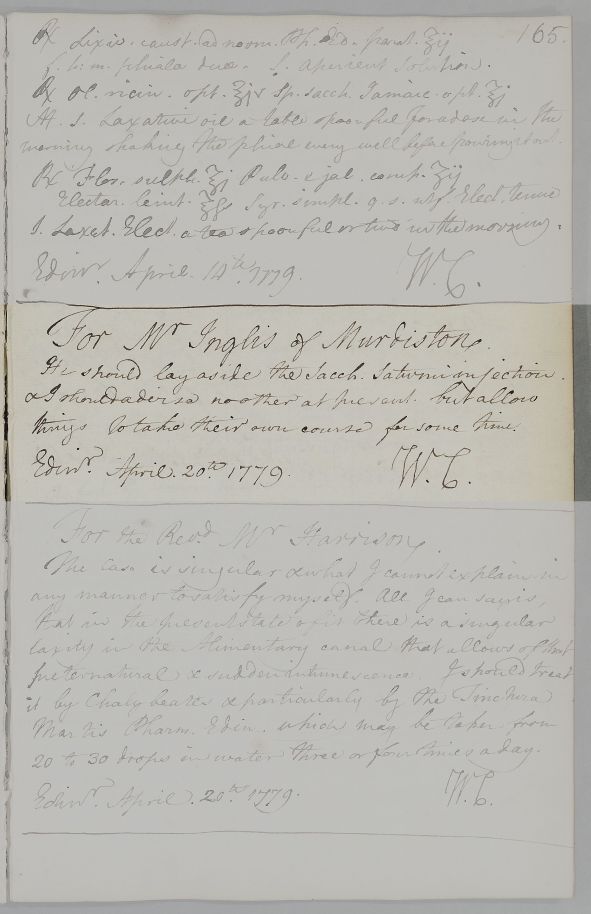 165.
℞ Lixiv. caust. ad norm. Ph. Ed. parat. ℥ij
f. h. m. phiala duæ. S. Aperient Solution.
℞ Ol. ricin. opt. ℥jv Sp. Sacch. Jamaic. opt. ℥j
M. S. Laxative oil a table spoonful for a dose in the
morning shaking the phial every well before pouring out.
℞ Flor. sulph. ℥j Pulv. e jal. comp. ℥ij
Electar. lenit. ℥ſs Syr. simpl. q. s. ut f. Elect. tenue
S. Laxat. Elect. a tea spoonful or two in the morning.
Edinr. April. 14th. 1779. W.C.
For Mr Inglis of Murdiston.
He should lay aside the Sacch. Saturni injection.
& I should advise no other at present. but allow
things to take their own course for some time.
Edinr. April. 20th. 1779. W.C.
For the Revd. Mr Harrison.
The Case is singular & what I cannot explain in
any manner to satisfy myself. All I can say is,
that in the present state of it there is a singular
laxity in the Alimentary canal that allows of that
preternatural & sudden intumescence. I should treat
it by Chalybeates & particularly by the Tinctura
Martis Pharm. Edin. which may be taken from
20 to 30 drops in water three or four times a day.
Edinr. April. 20th. 1779. W.C.